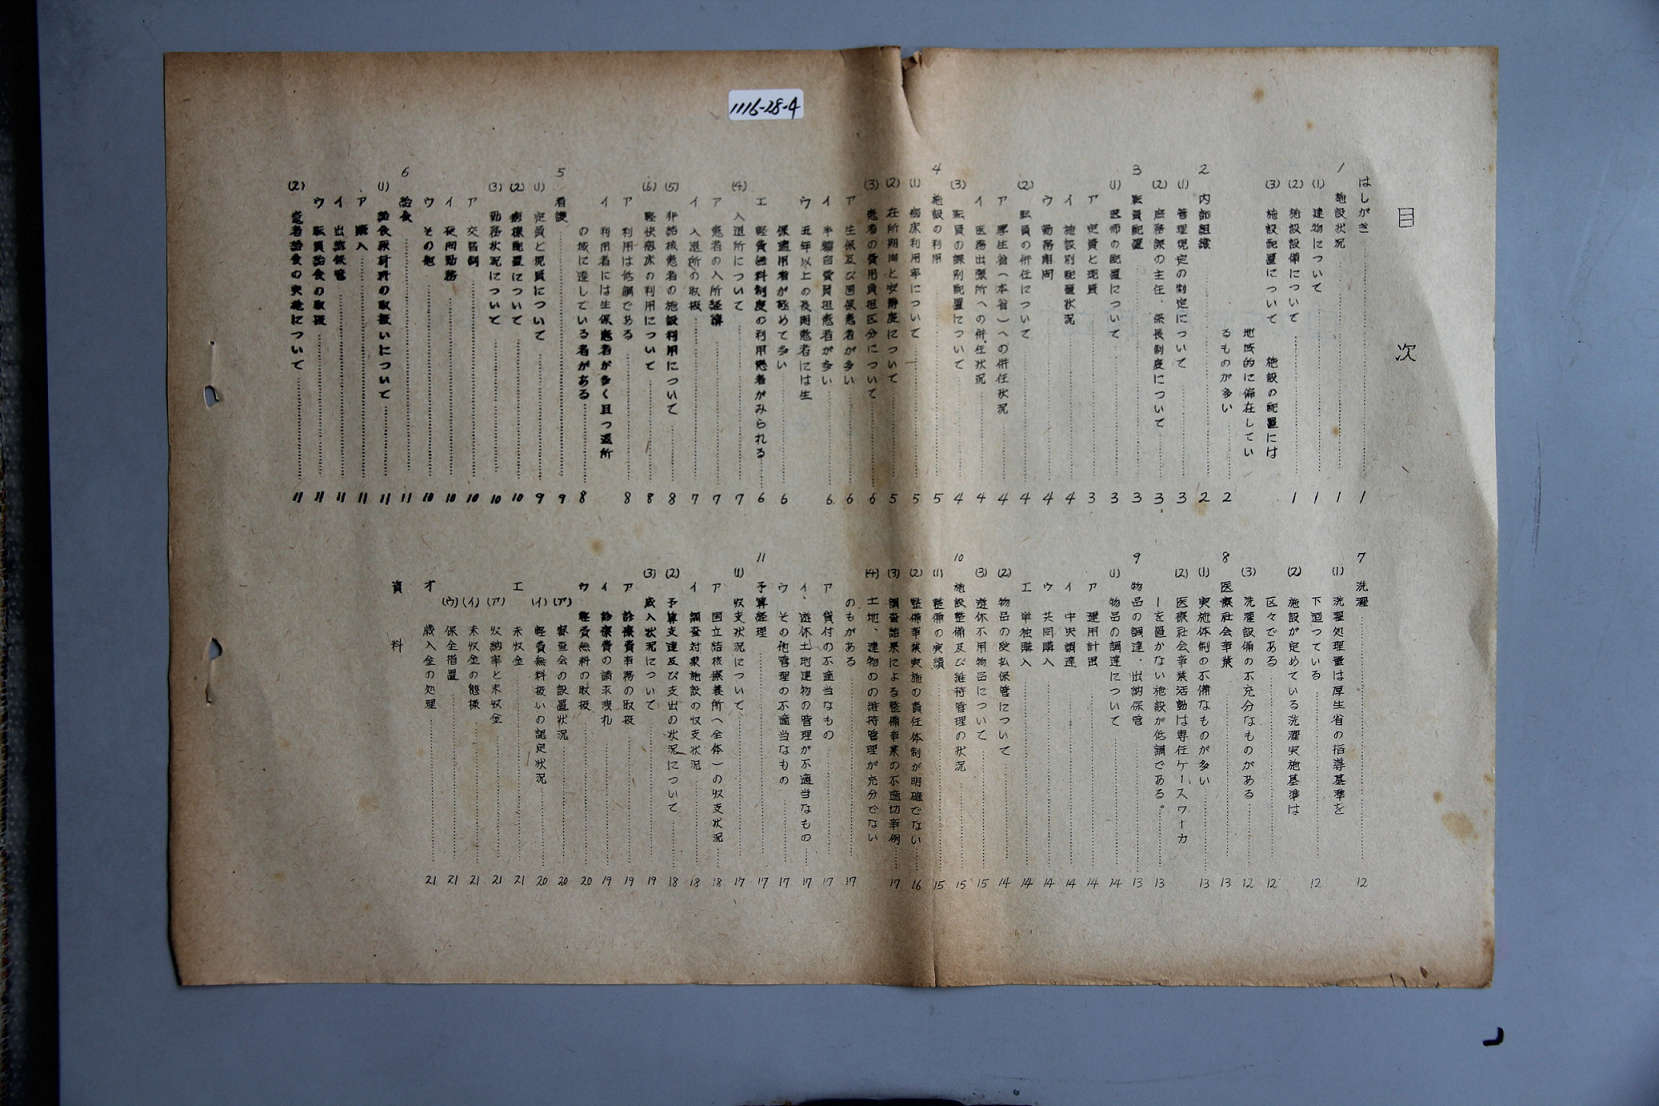 1116-28-4
目次
はしがき 1
1 施設状況 1
(1) 建物について 1
(2) 施設設備について 1
(3) 施設配置について 施設の配置には
地域的に偏在してい
るものが多い 2
2 内部組織 2
(1) 管理規定の制定について 3
(2) 庶務課の主任、係長制度について 3
3 職員配置 3
(1) 医師の配置について 3
ア 定員と現員 3
イ 施設別配置状況 4
ウ 勤務時間 4
(2) 職員の併任について 4
ア 厚生省(本省)への併任状況 4
イ 医務出張所への併任状況 4
(3) 職員の課別配置について 4
4 施設の利用 5
(1) 病床利用率について 5
(2) 在所期間と安静度について 5
(3) 患者の費用負担区分について 6
ア 生保及び国保患者が多い 6
イ 半額自費負担患者が多い 6
ウ 五年以上の長期患者には生
保適用者が極めて多い 6
エ 軽費無料制度の利用患者がみられる 6
(4) 入退所について 7
ア 患者の入所経済 7
イ 入退所の取扱 7
(5) 非結核患者の施設利用について 8
(6) 軽快病床の利用について 8
ア 利用は低調である 8
イ 利用者には生保患者が多く且つ退所
の域に達している者がある 8
5 看護 9
(1) 定員と現員について 9
(2) 病棟配置について 10
(3) 勤務状況について 10
ア 交替制 10
イ 夜間勤務 10
ウ その他 10
6 給食 11
(1) 給食原材料の取扱いについて 11
ア 購入 11
イ 出納保管 11
ウ 職員給食の取扱 11
(2) 患者給食の実施について 11
7 洗濯 12
(1) 洗濯処理量は厚生省の指導基準を
下廻つている 12
(2) 施設が定めている洗濯実施基準は
区々である 12
(3) 洗濯設備の不充分なものがある 12
8 医療社会事業 13
(1) 実施体制の不備なものが多い 13
(2) 医療社会事業活動は専任ケースワーカ
ーを置かない施設が低調である。 13
9 物品の調達、出納保管 13
(1) 物品の調達について 14
ア 運用計画 14
イ 中央調達 14
ウ 共同購入 14
エ 単独購入 14
(2) 物品の受払保管について 14
(3) 遊休不用物品について 15
10 施設整備及び維持管理の状況 15
(1) 整備の実績 15
(2) 整備事業実施の責任体制が明確でない 16
(3) 調査結果による整備事業の不適切事例 17
(4) 土地、建物のの維持管理が充分でない
のもがある 17
ア 貸付の不適当なもの 17
イ、遊休土地建物の管理が不適当なもの 17
ウ その他管理の不適当なもの 17
11 予算経理 17
(1) 収支状況について 17
ア 国立結核療養所(全体)の収支状況 18
イ 調査対象施設の収支状況 18
(2) 予算支達及び支出の状況について 18
(3) 歳入状況について 19
ア 診療費事務の取扱 19
イ 診療費の請求洩れ 19
ウ 軽費無料の取扱 20
(ア) 審査会の設置状況 20
(イ) 軽費無料扱いの認定状況 20
エ 未収金 21
(ア) 収納率と未収金 21
(イ) 未収金の態様 21
(ウ) 保全措置 21
オ 歳入金の処理 21
資料